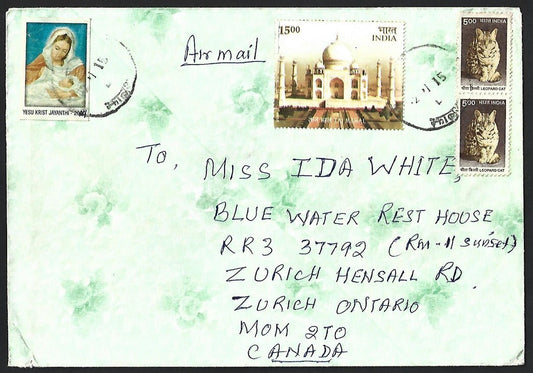 Air mail
YESU KRIST JAYANTHI - 2000
1500
भारत
INDIA
TAJ MAHAL
5.00 भारत INDIA
LEOPARD CAT
5.00 भारत INDIA
LEOPARD CAT
To,
MISS IDA WHITE,
BLUE WATER REST HOUSE
RR3 37792 (Rm-11 Sunset)
ZURICH HENSALL RD
ZURICH ONTARIO
MOM 2TO
CANADA